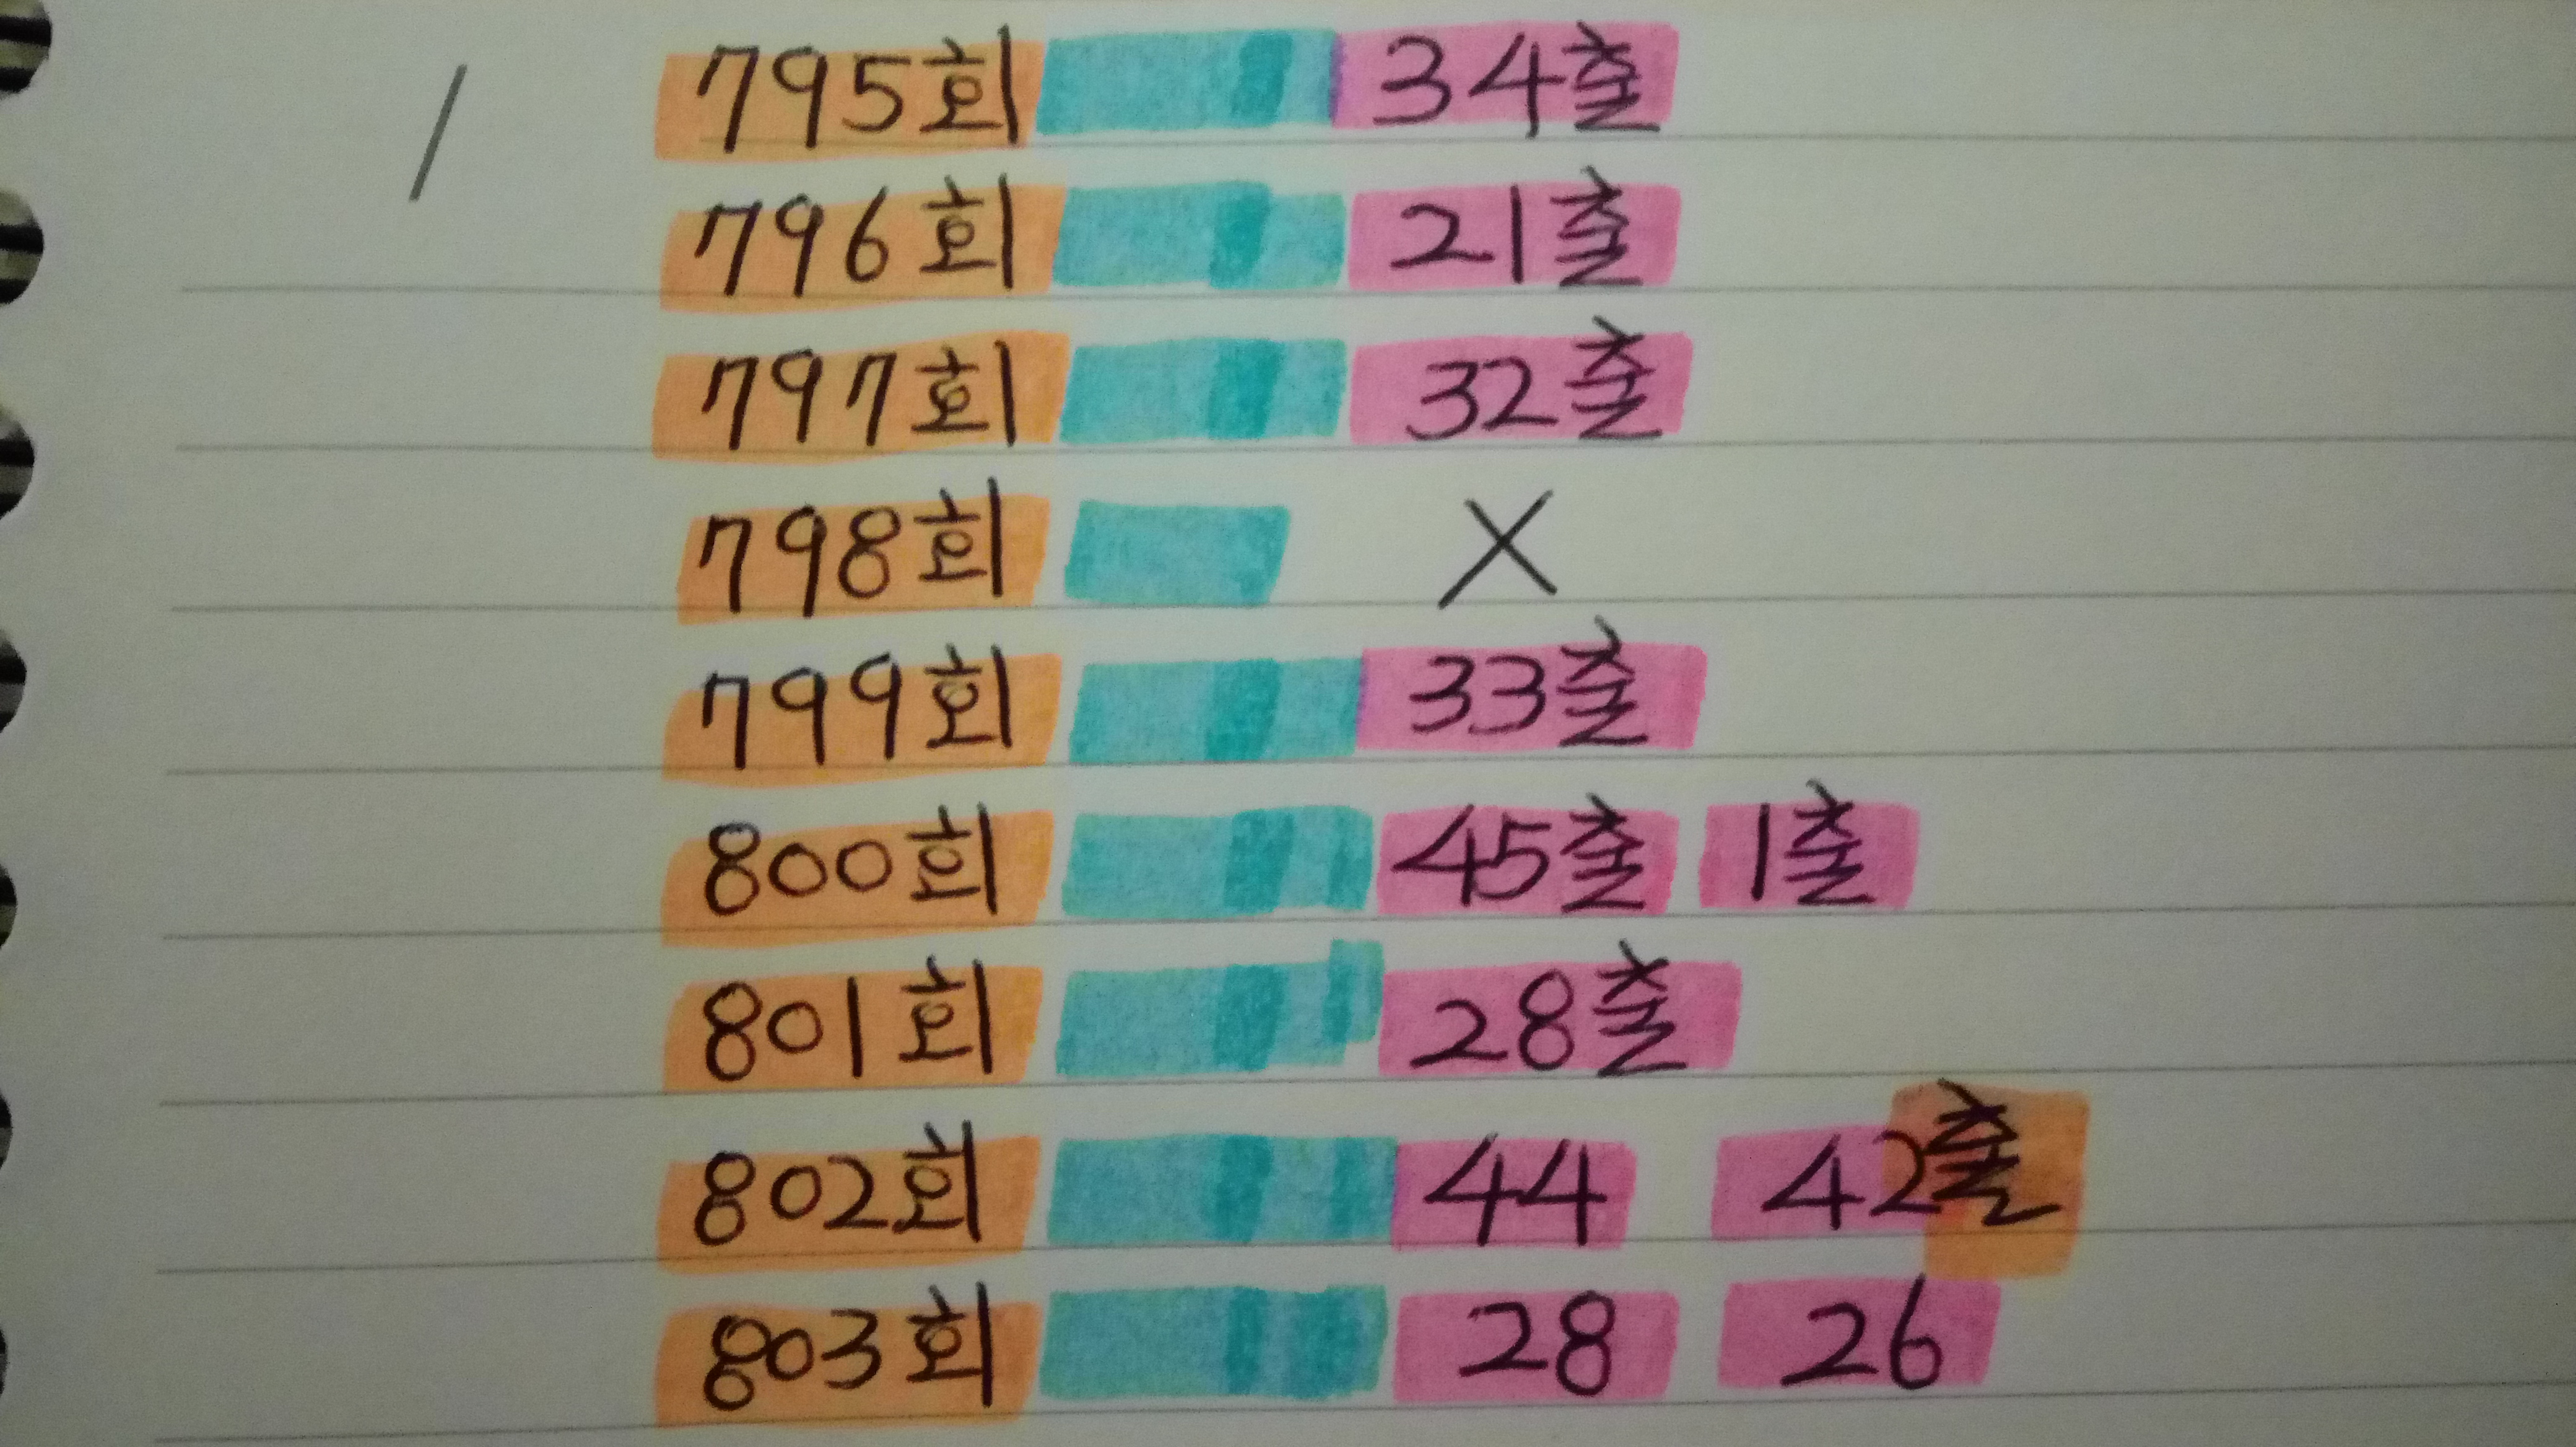 795회 34출
796회 21출
797회 32출
798회 X
799회 33출
800회 45출 1출
801회 28출
802회 44 42출
803회 28 26